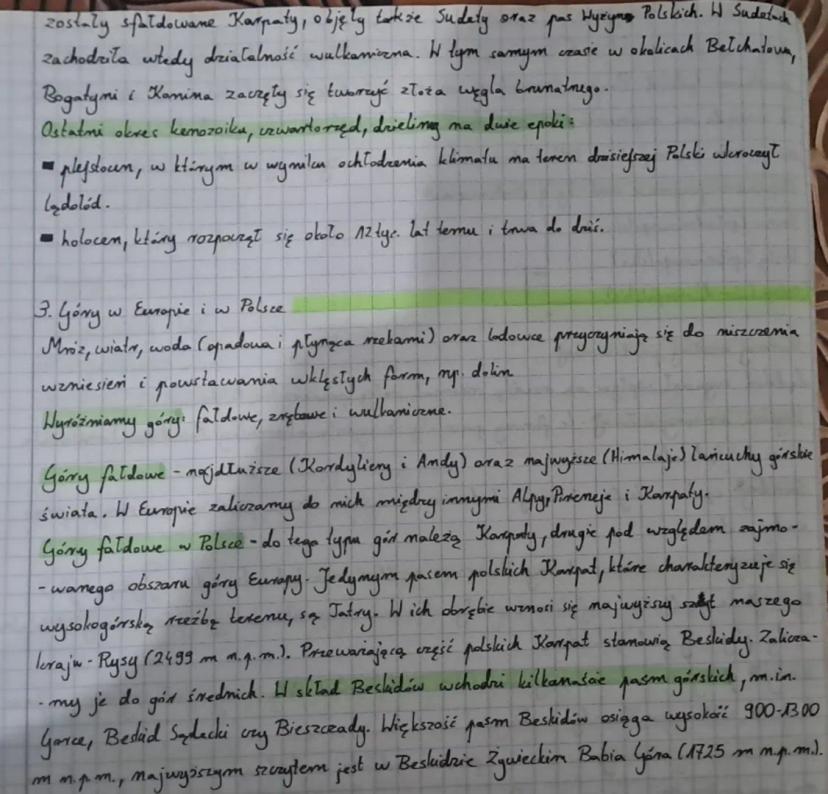 zostały sfałdowane Karpaty, objęły także Sudety oraz pas Wyżyn Polskich. W Sudetach
zachodziła wtedy działalność wulkaniczna. W tym samym czasie w okolicach Bełchatowa,
Bogatyni i Konina zaczęły się tworzyć złoża węgla brunatnego.
Ostatni okres kenozoiku, czwartorzęd, dzielimy na dwie epoki:
▪ plejstocen, w którym w wyniku ochłodzenia klimatu na teren dzisiejszej Polski wkroczył
lądolód.
▪ holocen, który rozpoczął się około 12 tyś. lat temu i trwa do dziś.
3. Góry w Europie i w Polsce
Mróz, wiatr, woda (opadowa i płynąca rzekami) oraz lodowce przyczyniają się do niszczenia
wzniesień i powstawania wklęsłych form, np. dolin
Wyróżniamy góry: fałdowe, zrębowe i wulkaniczne.
Góry fałdowe - najdłuższe (Kordyliery i Andy) oraz najwyższe (Himalaje) łańcuchy górskie
świata. W Europie zaliczamy do nich między innymi Alpy, Pireneje i Karpaty.
Góry fałdowe w Polsce - do tego typu gór należą Karpaty, drugie pod względem zajmo-
-wanego obszaru góry Europy. Jedynym pasem polskich Karpat, które charakteryzuje się
wysokogórską rzeźbą terenu, są Tatry. W ich obrębie wznosi się najwyższy szczyt naszego
kraju - Rysy (2499 m n.p.m.). Przeważającą część polskich Karpat stanowią Beskidy. Zalicza-
-my je do gór średnich. W skład Beskidów wchodzi kilkanaście pasm górskich, m.in.
Gorce, Beskid Sądecki czy Bieszczady. Większość pasm Beskidów osiąga wysokość 900-1300
m n.p.m., najwyższym szczytem jest w Beskidzie Żywieckim Babia Góra (1725 m n.p.m.).